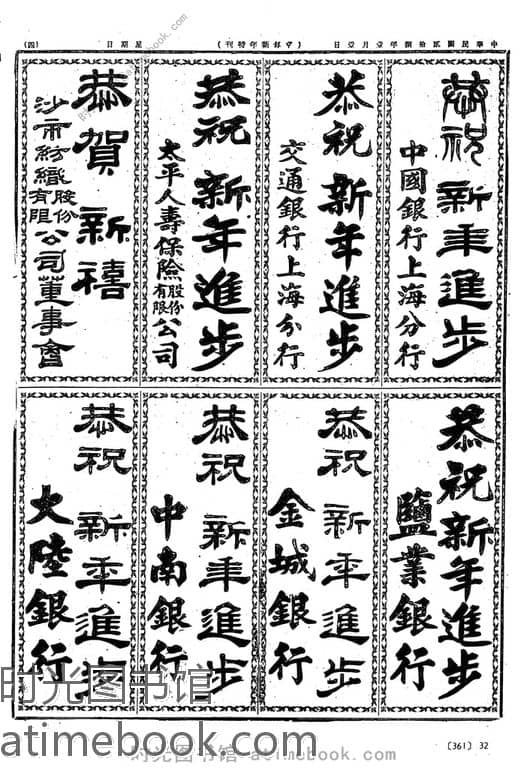 中華民國貳拾捌年壹月壹日
(申報新年特刊)
星期日
(四)
恭祝新年進步
中國銀行上海分行
恭祝新年進步
交通銀行上海分行
恭祝新年進步
太平人壽保險股份有限公司
恭賀新禧
沙市紡織股份有限公司董事會
恭祝新年進步
鹽業銀行
恭祝新年進步
金城銀行
恭祝新年進步
中南銀行
恭祝新年進步
大陸銀行
〔361〕 32
时光图书馆
atimebook.com
时光图书馆-atimebook.com